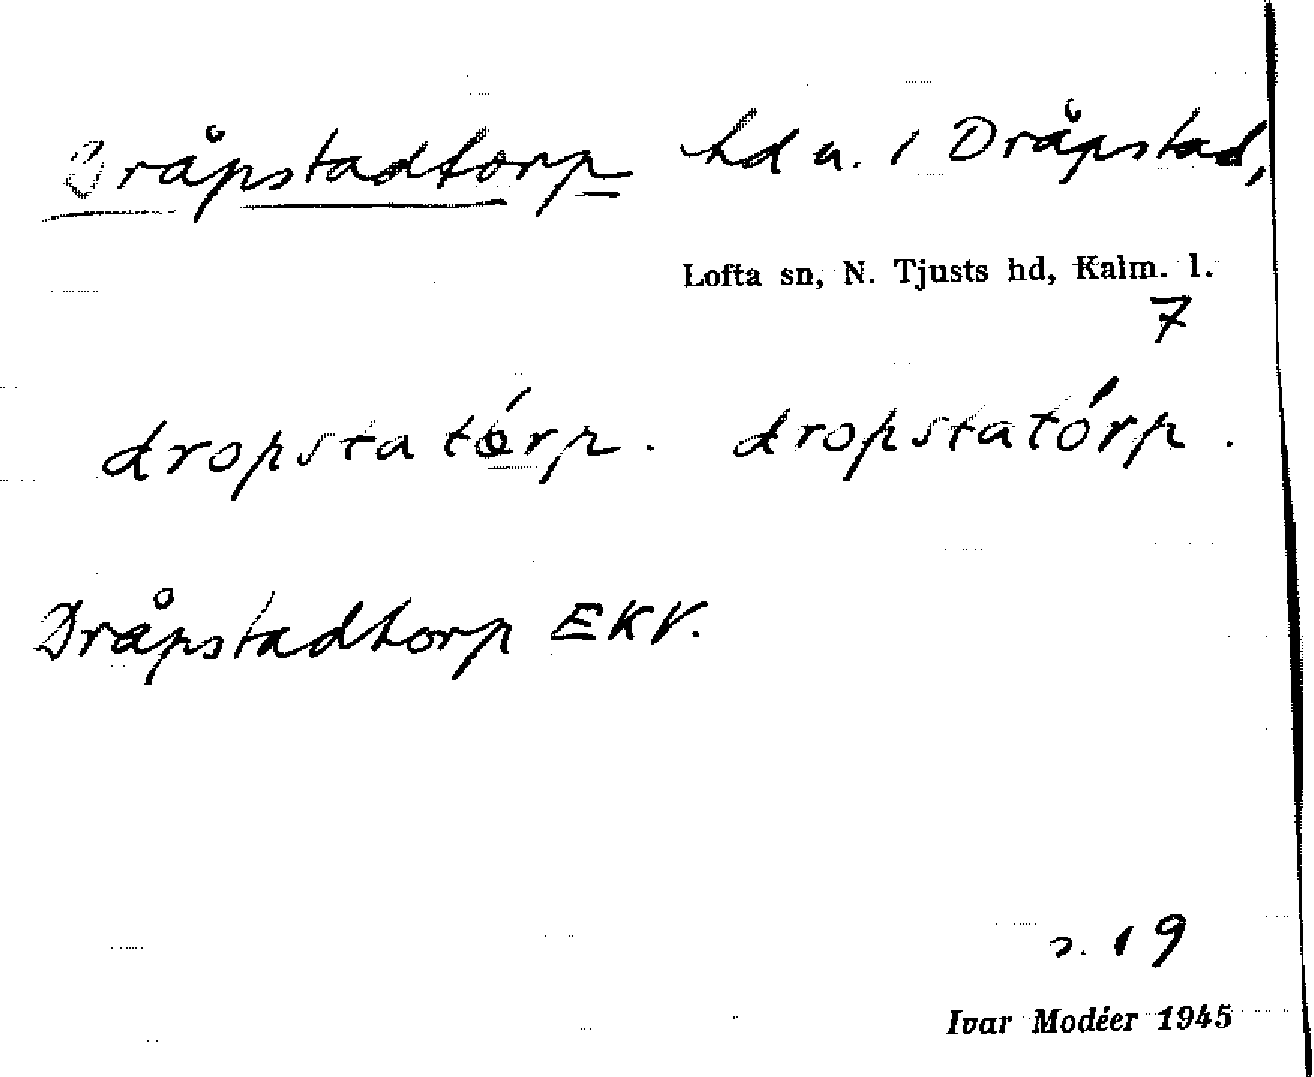 Dråpstadtorp hd u. i Dråpstad,
Lofta sn, N. Tjusts hd, Kalm. l.
7
dropstatórp. dropstatórp.
Dråpstadtorp EKV.
s. 19
Ivar Modéer 1945